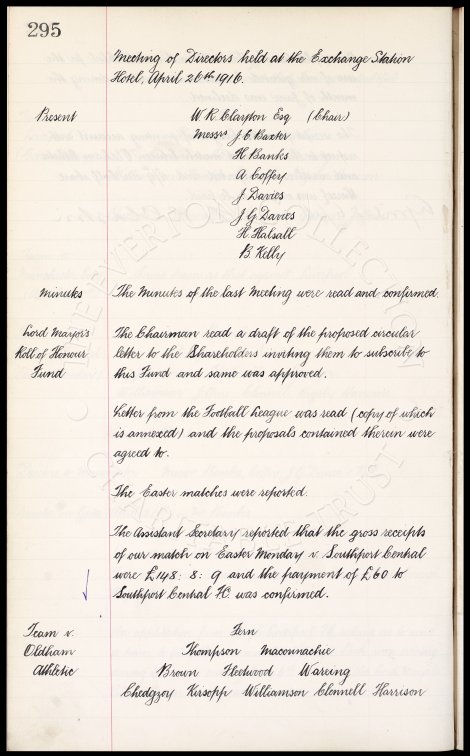 295
Meeting of Directors held at the Exchange Station
Hotel, April 26th 1916.
Present W R Clayton Esq (Chair)
Messrs J C Baxter
H Banks
A Coffey
J Davies
J G Davies
H Halsall
B. Kelly
Minutes The Minutes of the last Meeting were read and confirmed.
Lord Mayor's The Chairman read a draft of the proposed circular
Roll of Honour letter to the Shareholders inviting them to subscribe to
Fund this Fund and same was approved.
Letter from the Football League was read (copy of which
is annexed) and the proposals contained therein were
agreed to.
The Easter matches were reported.
The Assistant Secretary reported that the gross receipts
of our match on Easter Monday v. Southport Central
were £148: 8: 9 and the payment of £60 to
Southport Central F.C. was confirmed.
Team v. Fern
Oldham Thompson Maconnachie
Athletic Brown Fleetwood Wareing
Chedgzoy Kirsopp Williamson Clennell Harrison
THE EVERTON COLLECTION
CHARITABLE TRUST